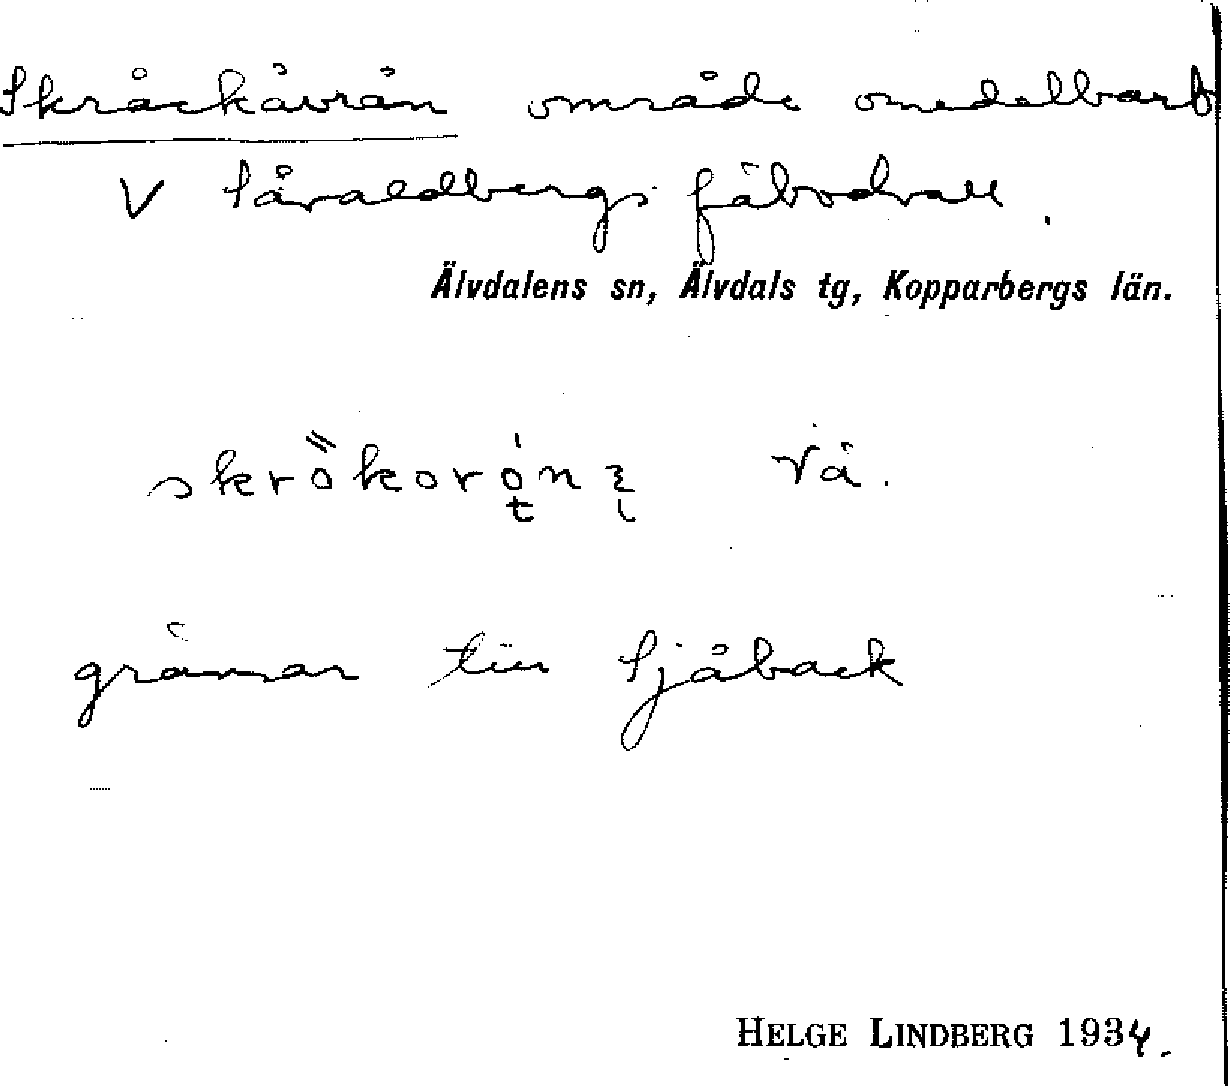 Skråckåvrån område omedelbart
V Såraldbergs fäbodvall.
Älvdalens sn, Älvdals tg, Kopparbergs län.
vä.
gränsar till Sjåback
HELGE LINDBERG 1934.